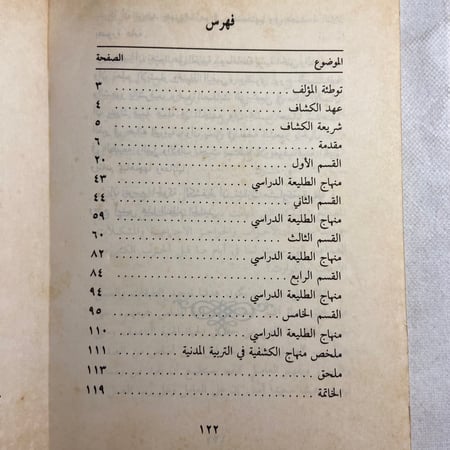 فهرس
الموضوع الصفحة
توطئة المؤلف . . . . . . . . . . . . . . . . . . . . ٣
عهد الكشاف . . . . . . . . . . . . . . . . . . . . ٤
شريعة الكشاف . . . . . . . . . . . . . . . . . . . . ٥
مقدمة . . . . . . . . . . . . . . . . . . . . ٦
القسم الأول . . . . . . . . . . . . . . . . . . . . ٢٠
منهاج الطليعة الدراسي . . . . . . . . . . . . . . . . ٤٣
القسم الثاني . . . . . . . . . . . . . . . . . . . . ٤٤
منهاج الطليعة الدراسي . . . . . . . . . . . . . . . . ٥٩
القسم الثالث . . . . . . . . . . . . . . . . . . . . ٦٠
منهاج الطليعة الدراسي . . . . . . . . . . . . . . . . ٨٢
القسم الرابع . . . . . . . . . . . . . . . . . . . . ٨٤
منهاج الطليعة الدراسي . . . . . . . . . . . . . . . . ٩٤
القسم الخامس . . . . . . . . . . . . . . . . . . . . ٩٥
منهاج الطليعة الدراسي . . . . . . . . . . . . . . . . ١١٠
ملخص منهاج الكشفية في التربية المدنية . . . . . . . . . ١١١
ملحق . . . . . . . . . . . . . . . . . . . . ١١٣
الخاتمة . . . . . . . . . . . . . . . . . . . . ١١٩
١٢٢